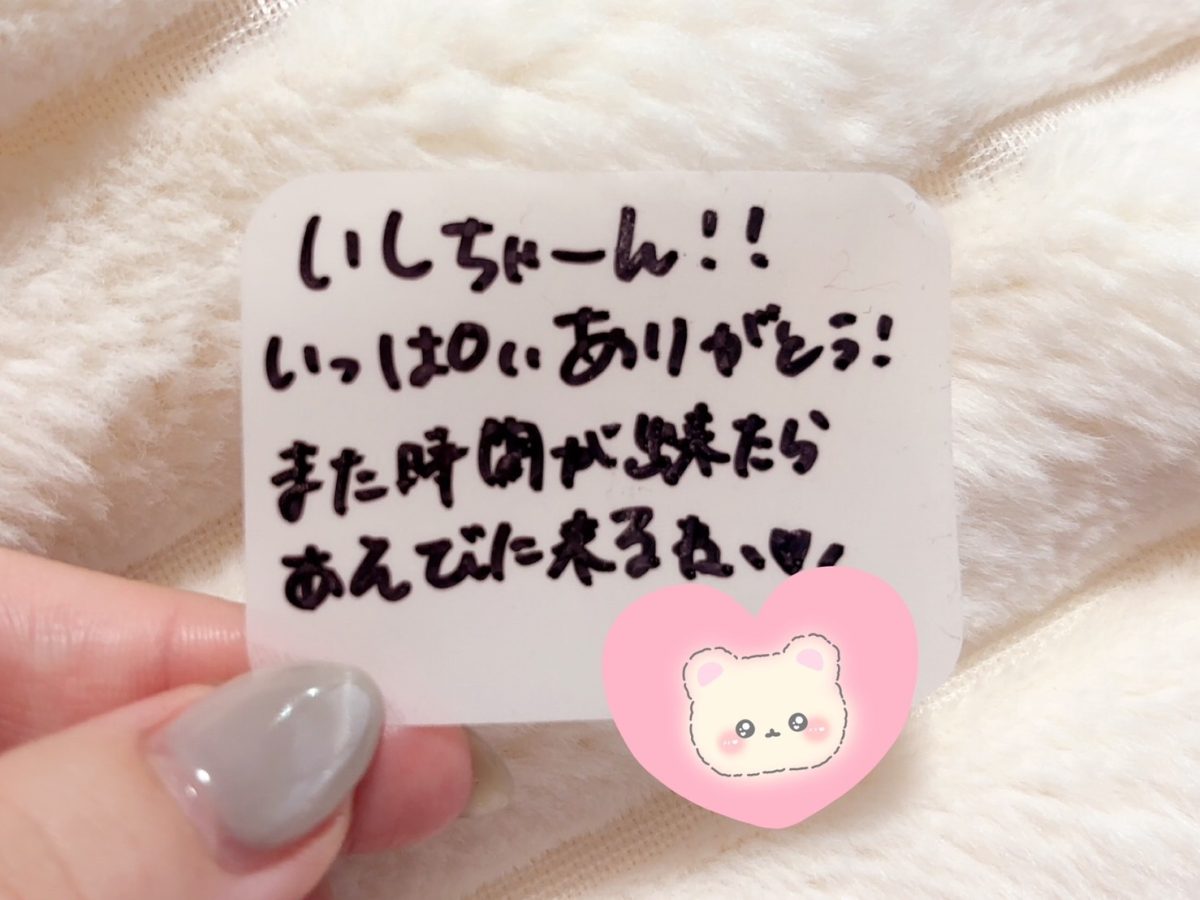 いしちゃーん!!
いっぱいありがとう!
また時間が出来たら
あそびに来るね、♥